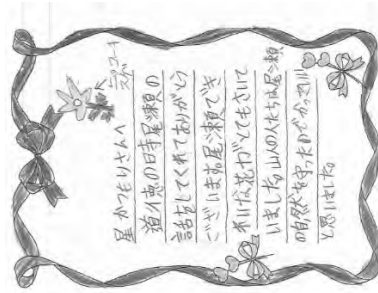 星かつもりさんへ
ニッコーキスゲ
道徳の時尾瀬の
話をしてくれてありがとう
ございます。尾瀬でき
れいな花がとてもさいて
いました。山の人たちは尾瀬
の自然を守ったのでかっこいい
と思いました。